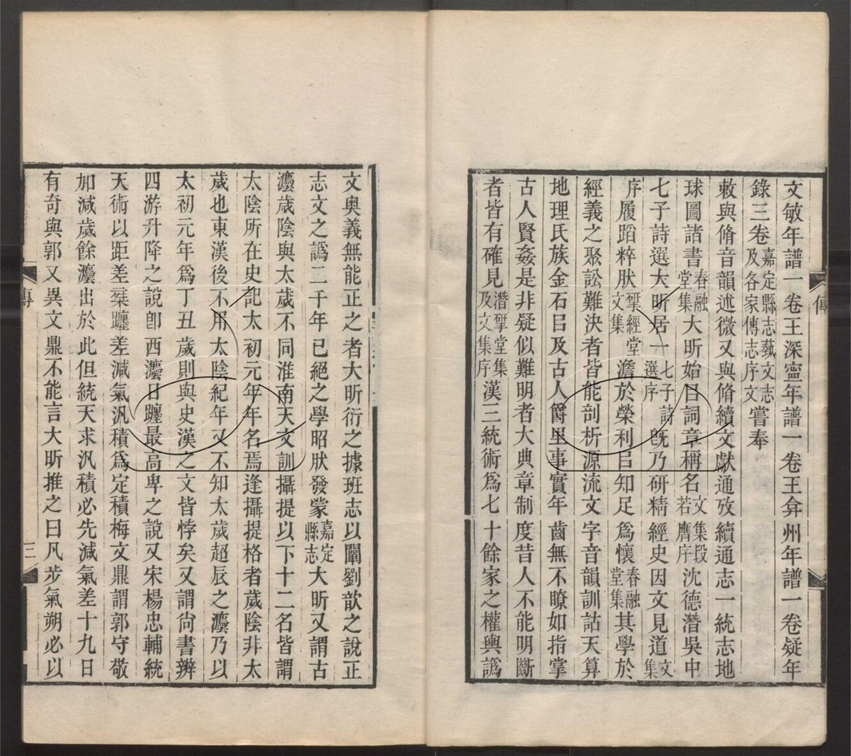 文敏年譜一卷王深寧年譜一卷王弇州年譜一卷疑年
錄三卷嘉定縣志藝文志及各家傳志序文嘗奉
敕與脩音韻述微又與脩續文獻通攷續通志一統志地
球圖諸書春融堂集大昕始㠯詞章稱名文集段若膺序沈德潛吳中
七子詩選大昕居一七子詩選序既乃研精經史因文見道文集
序履蹈粹肰揅經堂文集澹於榮利㠯知足爲懷春融堂集其學於
經義之聚訟難決者皆能剖析源流文字音韻訓詁天算
地理氏族金石㠯及古人爵里事實年齒無不瞭如指掌
古人賢姦是非疑似難明者大典章制度昔人不能明斷
者皆有確見潛揅堂集及文集序漢三統術爲七十餘家之權輿譌
文奧義無能正之者大昕衍之據班志以闡劉歆之說正
志文之譌二千年已絕之學昭肰發蒙嘉定縣志大昕又謂古
灋歲陰與太歲不同淮南天文訓攝提以下十二名皆謂
太陰所在史記太初元年年名焉逢攝提格者歲陰非太
歲也東漢後不用太陰紀年又不知太歲超辰之灋乃以
太初元年爲丁丑歲則與史漢之文皆悖矣又謂尙書緯
四游升降之說卽西灋日躔最高卑之說又宋楊忠輔統
天術以距差乘躔差減氣汎積爲定積梅文鼎謂郭守敬
加減歲餘灋出於此但統天求汎積必先減氣差十九日
有奇與郭又異文鼎不能言大昕推之曰凡步氣朔必以
傳
三